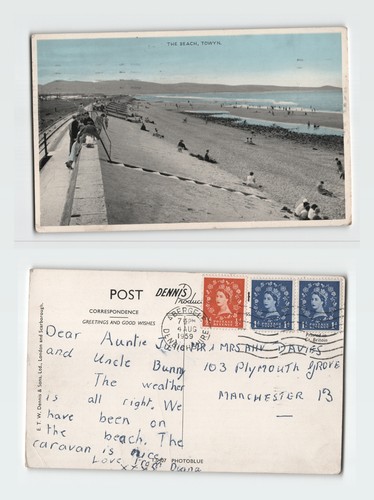 THE BEACH, TOWYN.
POST
DENNIS
Produc
CORRESPONDENCE
GREETINGS AND GOOD WISHES
ABERGELE
7 PM
4 AUG
1959
DENBIGHSHIRE
Dear Auntie
and Uncle Bunny
The weather
is all right. We
have been on
the beach. The
caravan is nice.
Love from Diana
MR & MRS
DAVIES
103 PLYMOUTH GROVE
MANCHESTER 13
E. T. W. Dennis & Sons, Ltd., London and Scarborough.
PHOTOBLUE